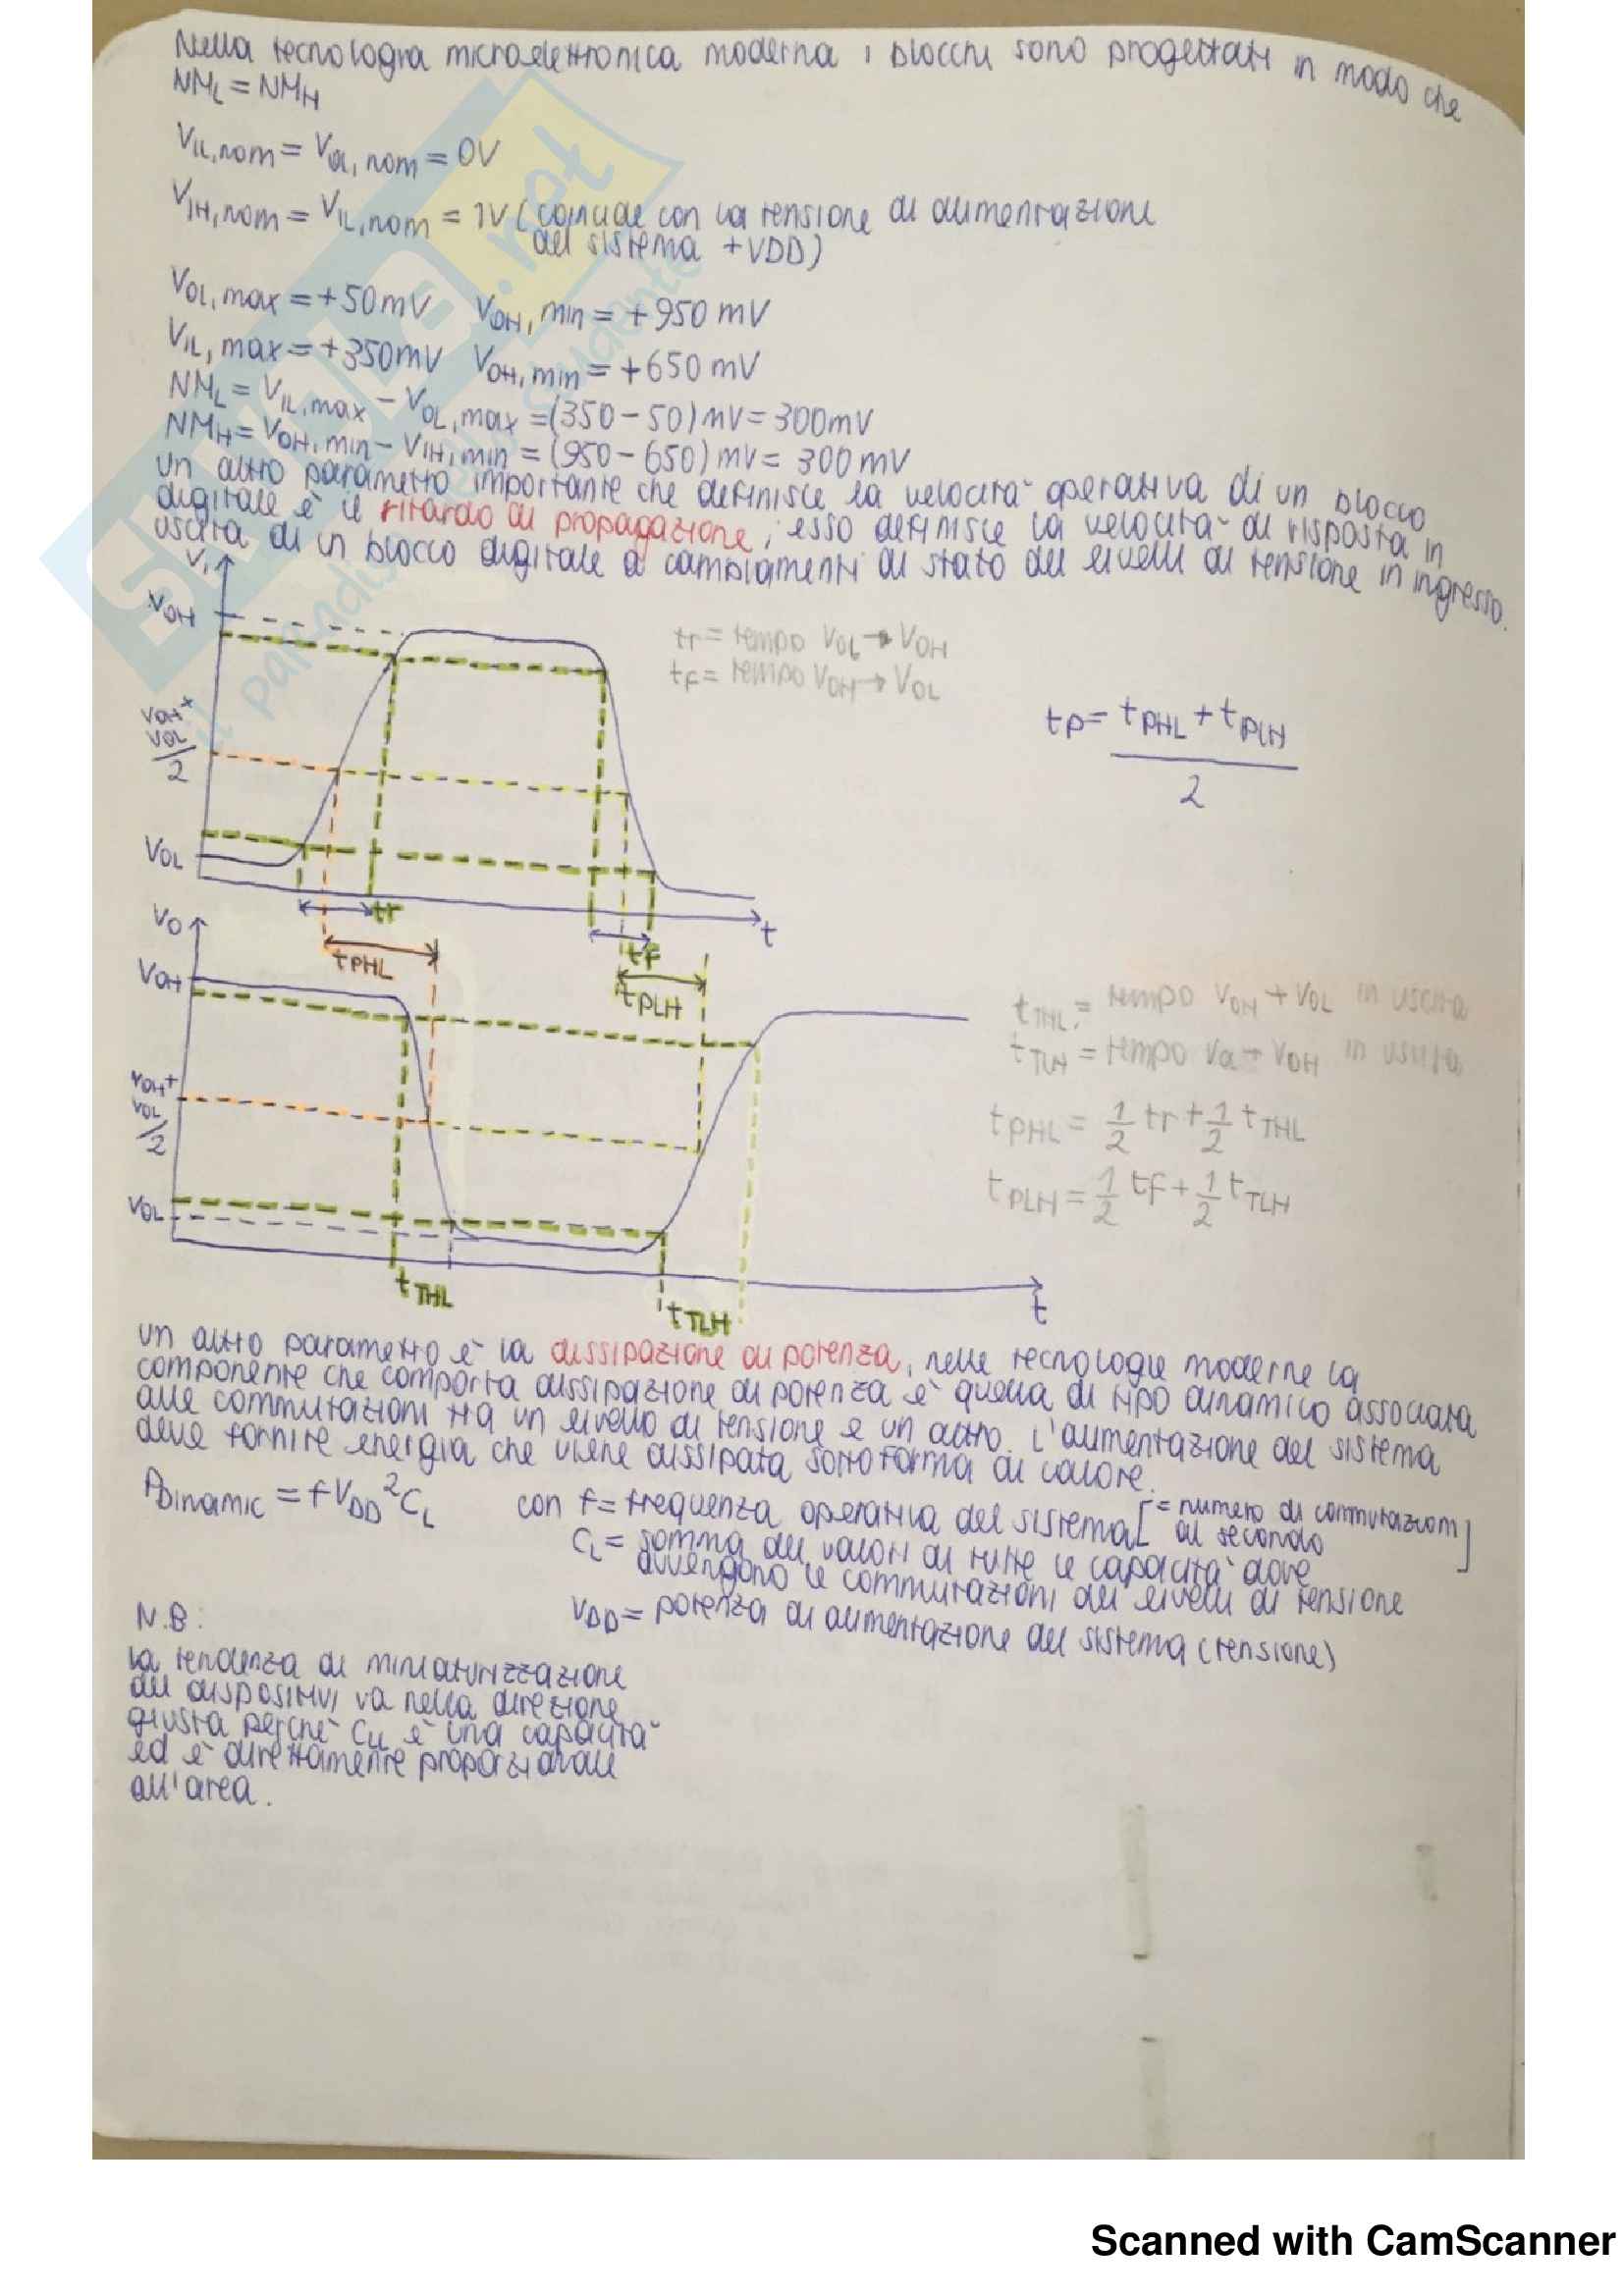 Nella tecnologia microelettronica moderna i blocchi sono progettati in modo che
NML = NMH
VIL,nom = VOL,nom = 0V
VIH,nom = VIL,nom = 1V (coincide con la tensione di alimentazione
del sistema +VDD)
VOL,max = +50mV VOH,min = +950 mV
VIL,max = +350mV VOH,min = +650 mV
NML = VIL,max - VOL,max = (350-50) mV = 300mV
NMH = VOH,min - VIH,min = (950-650) mV = 300 mV
un altro parametro importante che definisce la velocità operativa di un blocco
digitale è il ritardo di propagazione, esso definisce la velocità di risposta in
uscita di un blocco digitale a cambiamenti di stato dei livelli di tensione in ingresso.
Vi
VOH
tr = tempo VOL → VOH
tf = tempo VOH → VOL
VOH+
VOL
/2
tp = tPHL + tPLH
2
VOL
tr
tf
t
VO
tPHL
tPLH
VOH
tTHL = tempo VOH → VOL in uscita
tTLH = tempo VOL → VOH in uscita
VOH+
VOL
/2
tPHL = 1/2 tr + 1/2 tTHL
tPLH = 1/2 tf + 1/2 tTLH
VOL
tTHL
tTLH
t
un altro parametro è la dissipazione di potenza, nelle tecnologie moderne la
componente che comporta dissipazione di potenza è quella di tipo dinamico associata
alle commutazioni tra un livello di tensione e un altro. L'alimentazione del sistema
deve fornire energia che viene dissipata sotto forma di calore.
PDinamic = f VDD² CL con f = frequenza operativa del sistema [= numero di commutazioni
al secondo]
CL = somma dei valori di tutte le capacità dove
avvengono le commutazioni dei livelli di tensione
VDD = potenza di alimentazione del sistema (tensione)
N.B:
la tendenza di miniaturizzazione
dei dispositivi va nella direzione
giusta perchè CL è una capacità
ed è direttamente proporzionale
all'area.
SKUOLA.net
il paradiso dello studente
Scanned with CamScanner